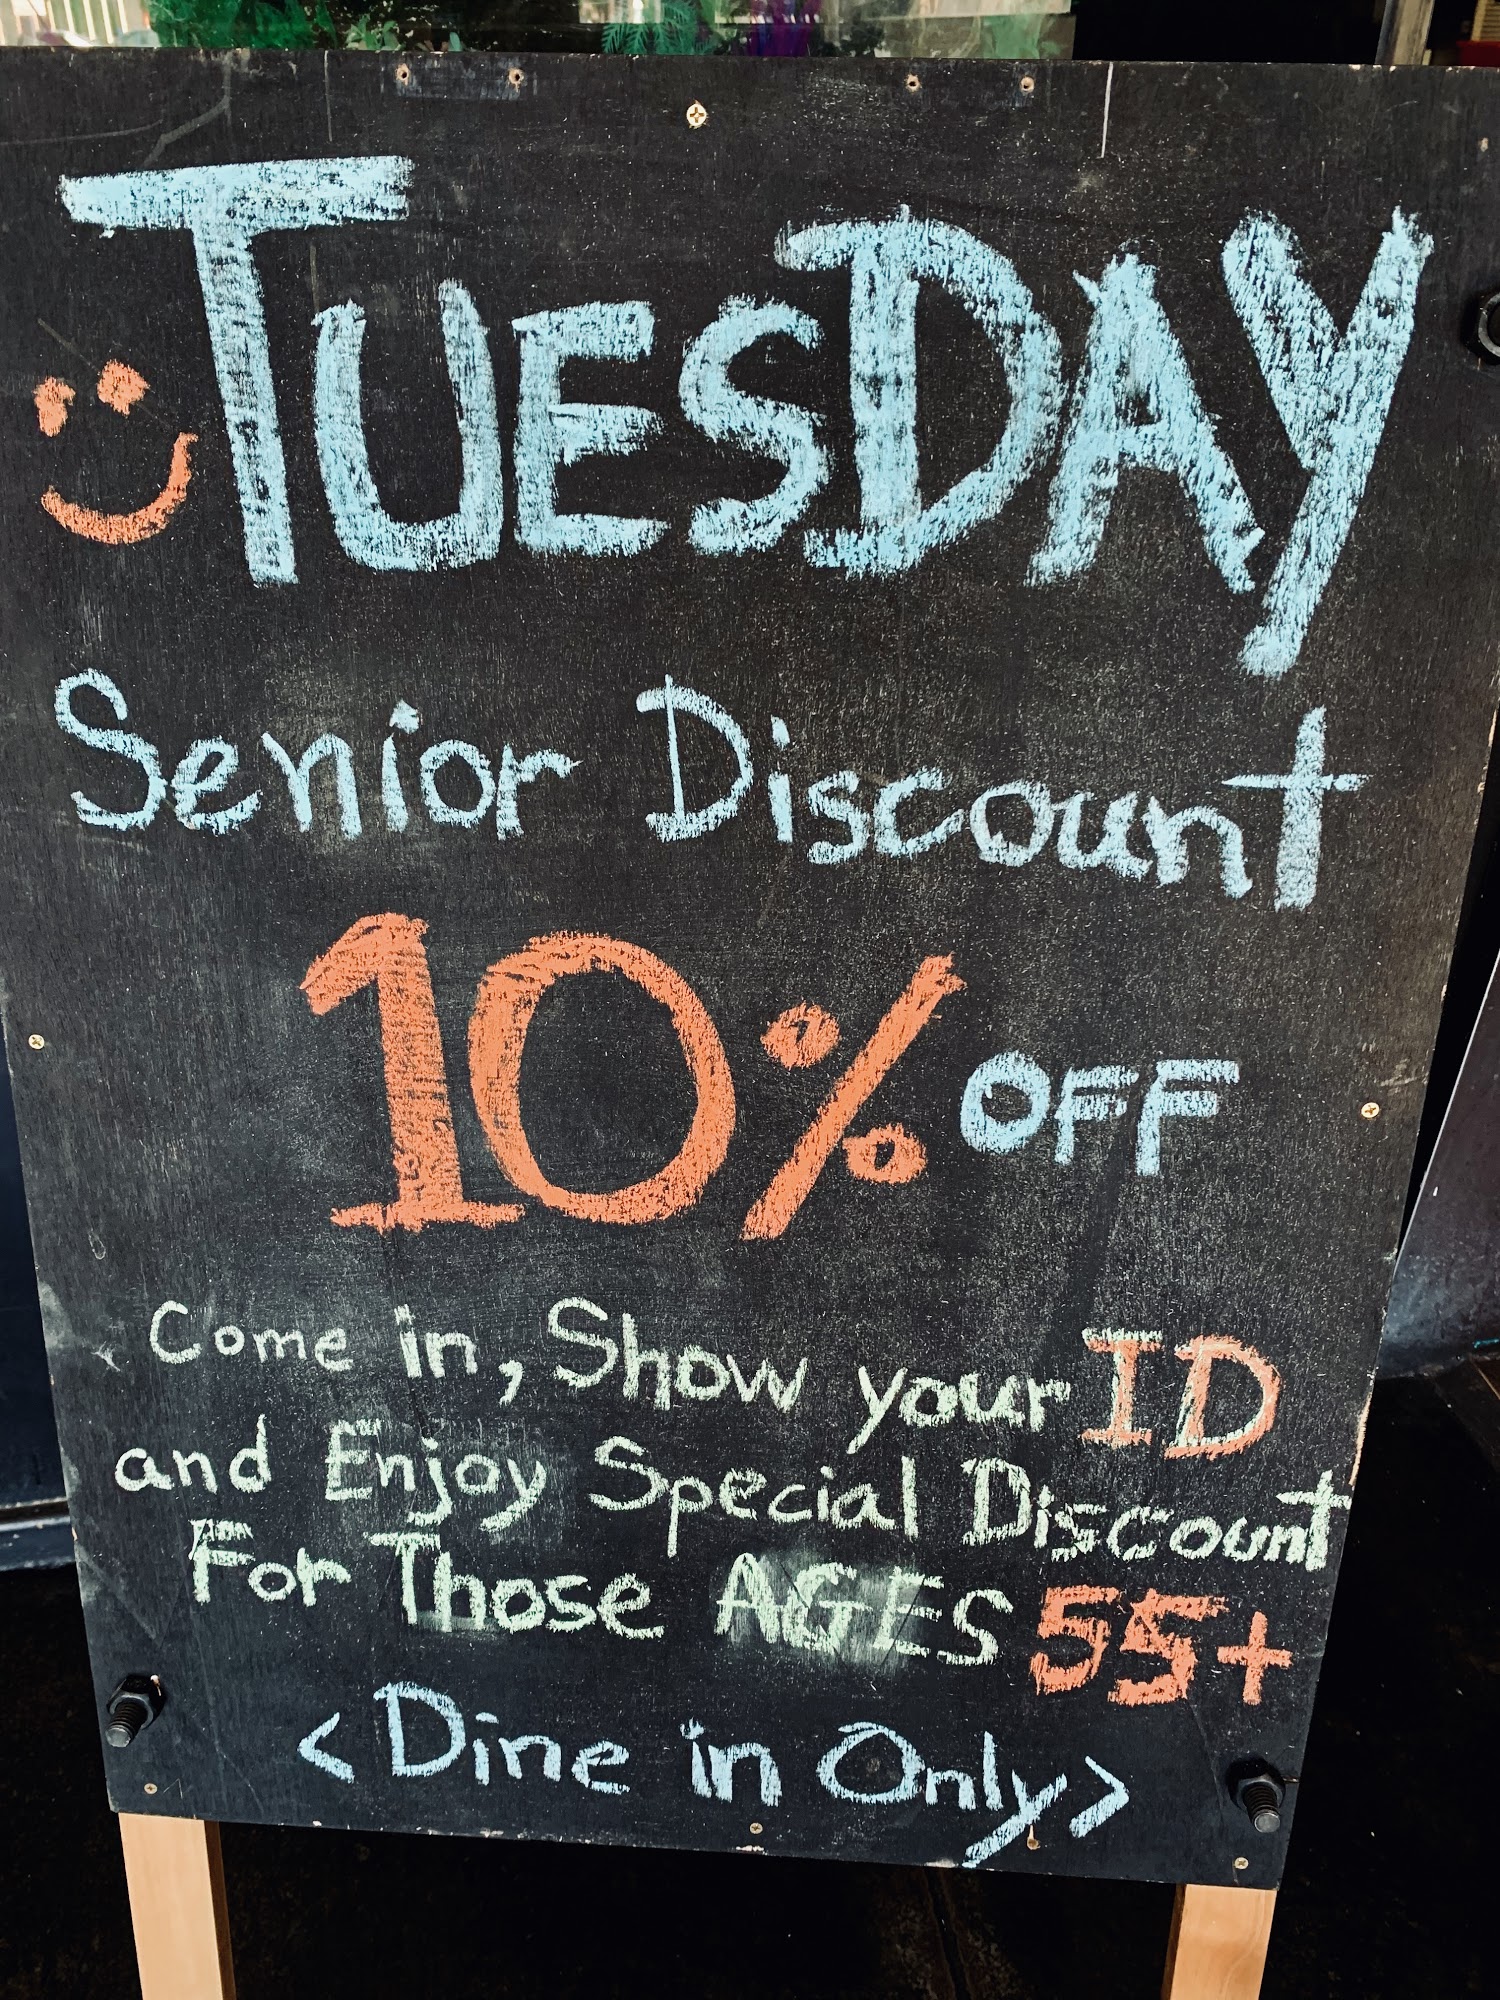 TUESDAY
Senior Discount
10% OFF
Come in, Show your ID
and Enjoy Special Discount
For Those AGES 55+
<Dine in Only>